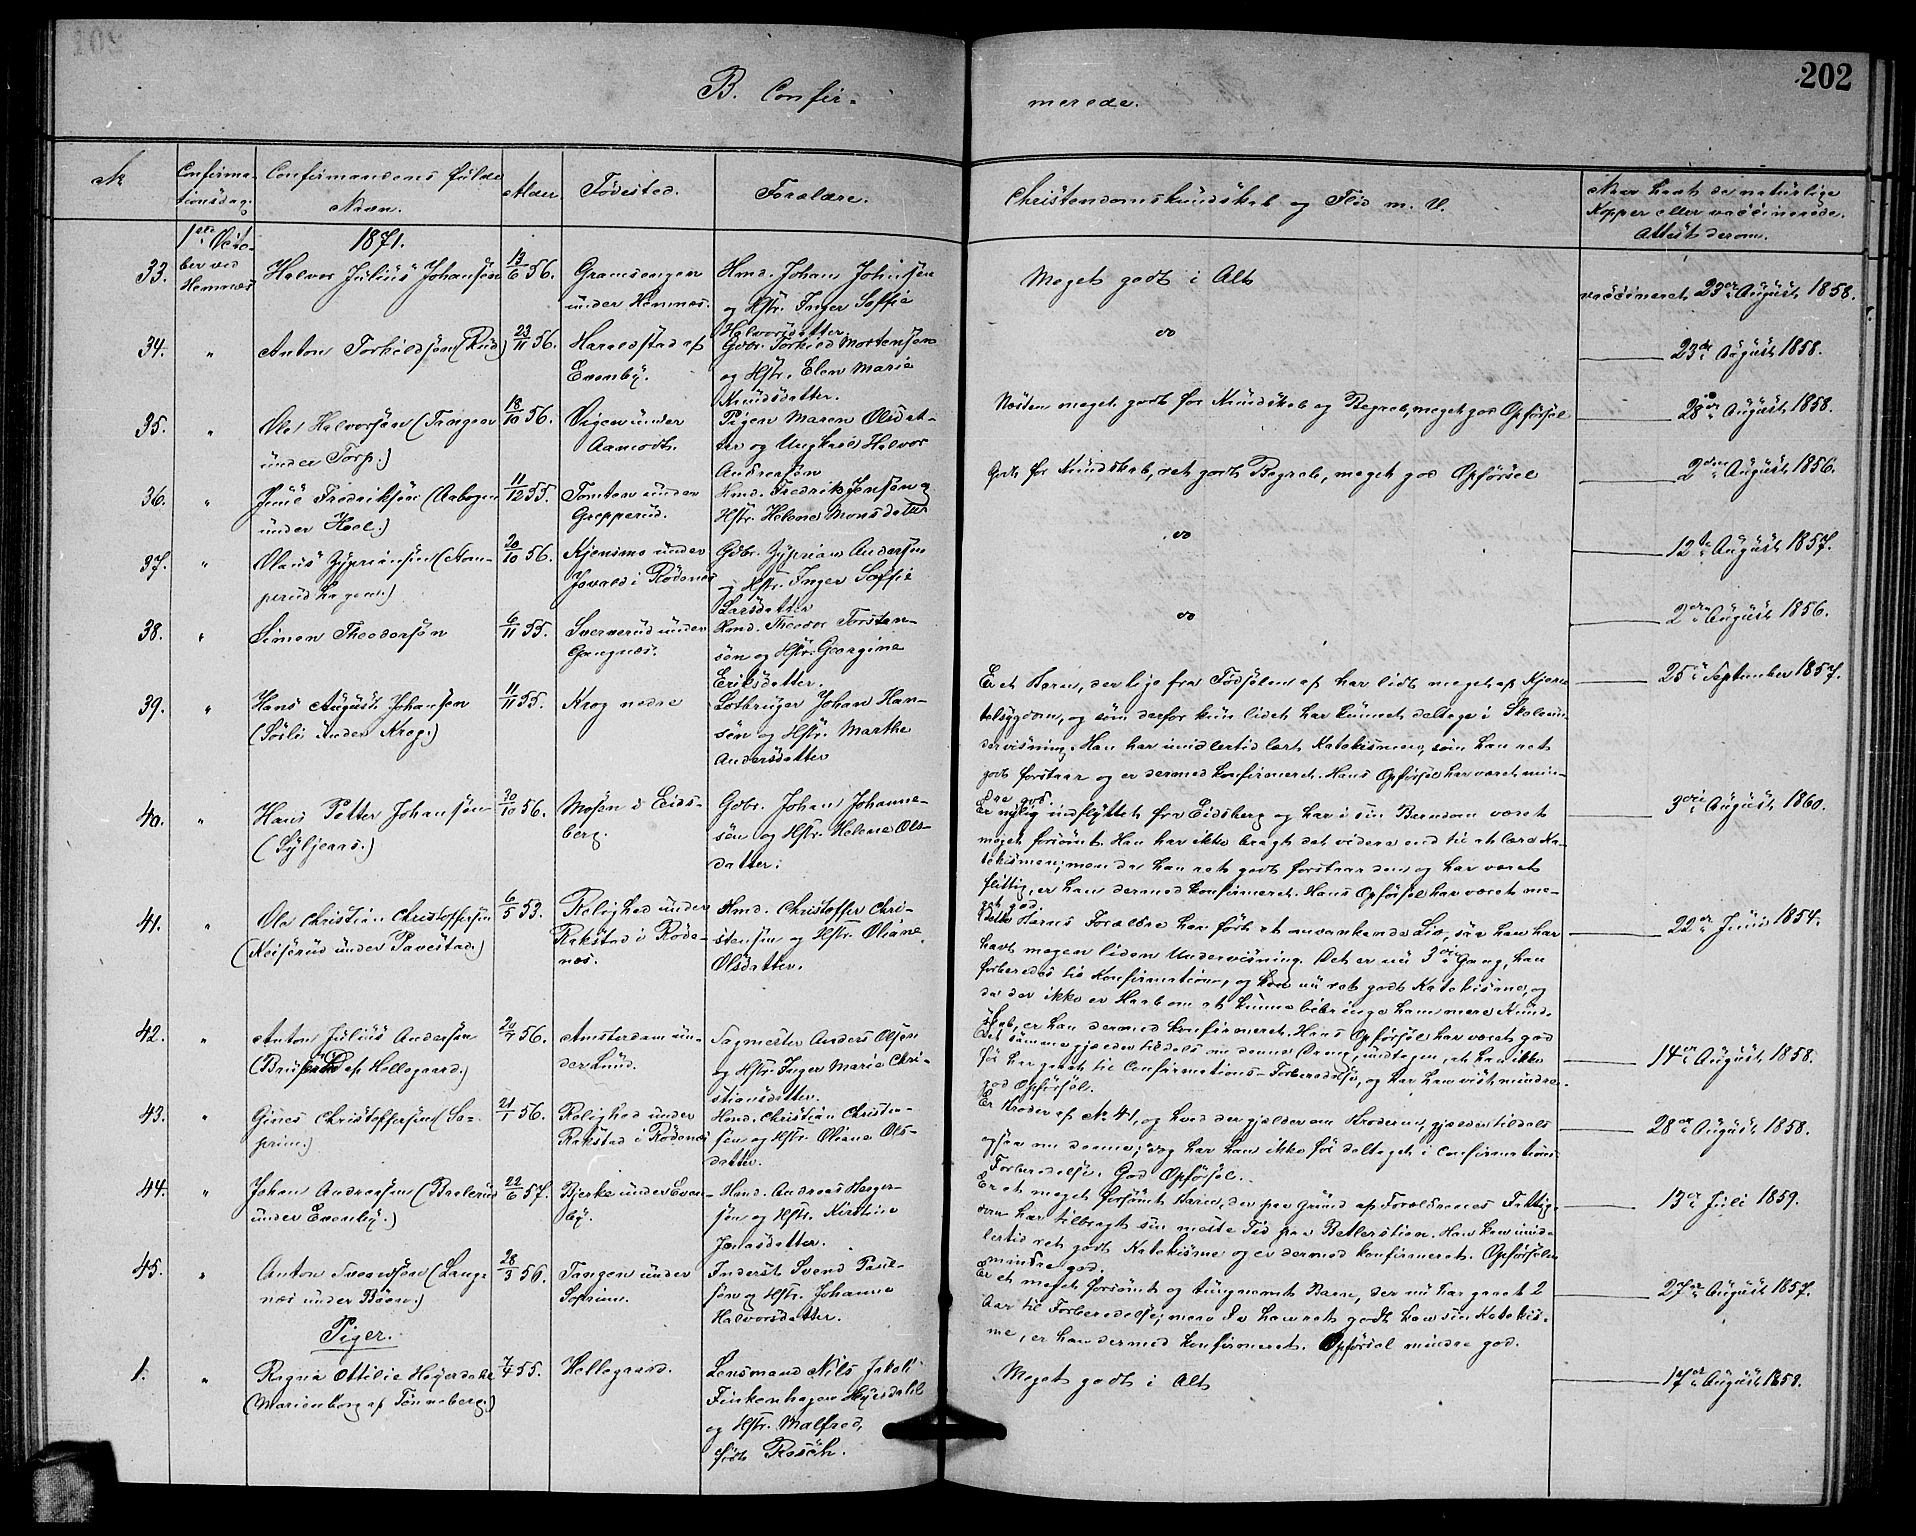 202
B. Confir-
merede.
№
Confirma-
tionsdag.
Confirmandens fulde
Navn.
Alder.
Fødested.
Forældre.
Christendomskundskab og Flid m. V.
Naar havt de naturlige
Kopper eller vaccinerede.
Attest derom.
1ste Octo-
ber ved
Hemnæs
1871.
33.
Halvor Julius Johansen
13/6 56.
Gramsengen
under Hemnæs.
Hmd. Johan Johnsen
og Hstr. Inger Soffie
Halvorsdatter.
Meget godt i Alt
vaccineret 23de August 1858.
34. "
Anton Torkildsøn (Rud)
23/11 56.
Haraldstad af
Evenby.
Gdbr. Torkild Mortensøn
og Hstr. Elen Marie
Knudsdatter.
do
23de August 1858.
35. "
Ole Halvorsøn (Tangen
under Torp.)
18/10 56.
Vigen under
Aamodt.
Pigen Maren Olsdat-
ter og Ungkarl Halvor
Andreasøn
Næsten meget godt for Kundskab og Begreb, meget god Opførsel
28de August 1858.
36. "
Juul Fredriksøn (Aabogen
under Heel.)
11/12 55.
Tomten under
Grepperud.
Hmd. Fredrik Jensøn og
Hstr. Helene Monsdatter
Godt for Kundskab, ret godt Begreb, meget god Opførsel
2den August 1856.
37. "
Olaus Zypriansøn (Hom-
perudhagen.)
20/10 56.
Kjensmo under
Jovald i Rødenæs
Gdbr. Zyprian Andersøn
og Hstr. Inger Soffie
Larsdatter
do
12te August 1857.
38. "
Simen Theodorsøn
6/11 55.
Sververud under
Gangnæs.
Hmd. Theodor Torsten-
søn og Hstr. Georgine
Eriksdatter.
do
2den August 1856.
39. "
Hans August Johansen
(Søsli under Krog.)
11/11 55.
Krog nedre
Lodbruger Johan Han-
søn og Hstr. Marthe
Andersdatter
Er et Barn, der lige fra Fødselen af har lidt meget af Kjerte
telsygdom, og som derfor kun lidet har kunnet deltage i Skoleun-
dervisning. Han har imidlertid lært Katekismen, som han ret
godt forstaar og er dermed konfirmeret. Hans Opførsel har været min-
dre god.
25de September 1857.
40. "
Hans Petter Johansøn
(Syljeaas.)
30/10 56.
Mosen i Eids-
berg.
Gdbr. Johan Johanne-
søn og Hstr. Helene Ols-
datter.
Er nylig indflyttet fra Eidsberg og har i sin Barndom været
meget forsømt. Han har ikke bragt det videre end til at lære Ka-
tekismen; men da han ret godt forstaar den og har været
flittig, er han dermed konfirmeret. Hans Opførsel har været me-
get god.
3die August 1860.
41. "
Ole Christian Christoffersen
(Keiserud under Tavestad.)
6/5 53.
Rolighed under
Rakstad i Røde-
næs.
Hmd. Christoffer Chri-
stensen og Hstr. Oliane
Olsdatter.
Dette Barns Forældre han ført et omvankende Liv, saa han har
havt megen liden Undervisning. Det er nu 3die Gang, han
forberedes til Konfirmation, og kan nu ret godt Katekisme, og
da der ikke er Haab om at kunne bibringe ham mere Kund-
skab, er han dermed konfirmeret. Hans Opførsel har været god
22de Juni 1854.
42. "
Anton Julius Andersøn
af Hellegaard.)
20/7 56.
Amsterdam un-
der Lund.
Sagmester Anders Olsen
og Hstr. Inger Marie Chri-
stiansdatter.
Det samme gjælder tildels om denne Dreng, undtagen, at han ikke
før har gaaet til Confirmations-Forberedelse, og har han vist mindre
god Opførsel.
14de August 1858.
43. "
Gines Christoffersøn (So-
prim.)
21/1 56.
Rolighed under
Rakstad i Rødenæs
Hmd. Christian Christen-
sen og Hstr. Oliane Ols-
datter.
Er Broder af № 41, og hvad der gjælder om Broderen, gjælder tildels
ogsaa om denne; dog har han ikke før deltaget i Confirmations
Forberedelse. God Opførsel.
28de August 1858.
44. "
Johan Andreasen (Brelerud
under Evenby.)
22/6 57.
Bjerke under Even-
by.
Hmd. Andreas Heger-
søn og Hstr. Kirstine
Jonasdatter.
Er et meget forsømt Barn, der paa Grund af Forældrenes Fattig-
dom har tilbragt sin meste Tid paa Betlerstien. Han kan imid-
lertid ret godt Katekisme og er dermed konfirmeret. Opførselen
mindre god.
13de Juli 1859.
45. "
Anton Svendsøn (Lang-
næs under Bøen.)
28/3 56.
Tangen under
Soprim.
Inderst Svend Paul-
søn og Hstr. Johanne
Halvorsdatter.
Er et meget forsømt og tungnemt Barn, der nu har gaaet 2
Aar til Forberedelse; men da han ret godt kan sin Katekis-
me, er han dermed konfirmeret. Opførsel mindre god.
27de August 1857.
Piger.
1. "
Ragna Ottilie Høyerdahl
(Marienborg af Tønneberg.)
7/4 55.
Hellegaard.
Lensmand Nils Jakob
Finkenhagen Høyerdahl
og Hstr. Malfred,
født Rasch.
Meget godt i Alt
17de August 1858.